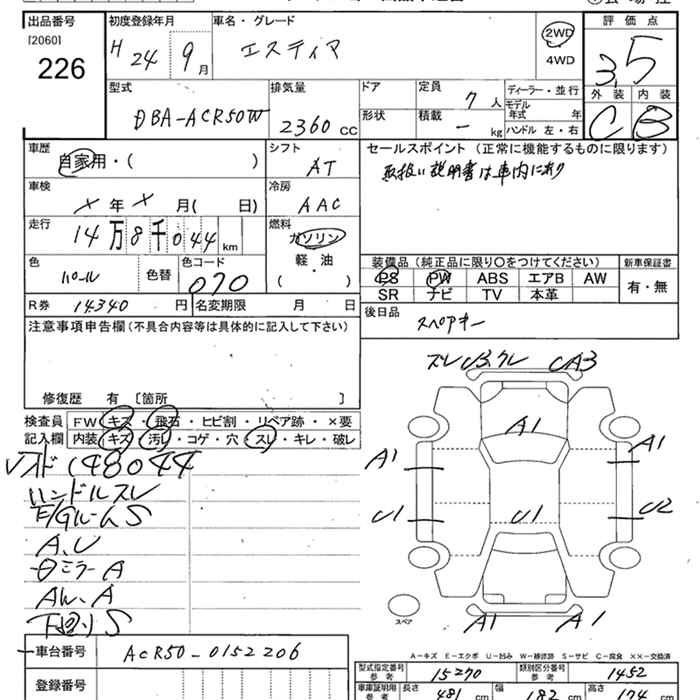 出品番号 初度登録年月 車名・グレード 評価点
[2060] H 24 9月 エスティマ 2WD 3.5
226 4WD
外装 内装
C B
型式 排気量 ドア 定員 ディーラー・並行
DBA-ACR50W 2360 CC 7人 モデル年式 年
形状 積載 - kg ハンドル 左・右
車歴 シフト セールスポイント (正常に機能するものに限ります)
自家用・( ) AT 取扱い説明書は車内にあり
車検 冷房
X年X月( 日) AAC
走行 燃料
14万8千044 km ガソリン
軽・油
( )
色 色替 色コード
パール 070
装備品 (純正品に限り○をつけてください) 新車保証書
PS PW ABS エアB AW 有・無
SR ナビ TV 本革
R券 14340 円 名変期限 月 日
後日品 スペアキー
注意事項申告欄 (不具合内容等は具体的に記入して下さい)
修復歴 有 [箇所 ]
検査員 FW キズ・飛石・ヒビ割・リペア跡・×要
記入欄 内装 キズ・汚レ・コゲ・穴・スレ・キレ・破レ
148044
ハンドルスレ
E/GルームS
A、U
ミラーA
AW、A
下廻りS
スレ U3 クレ CA3
A1
A1 A1
U1 U1 U2
A1 A1
スペア
A-キズ E-エクボ U-凹み W-補修跡 S-サビ C-腐食 XX-交換済
車台番号 ACR50-0152206
登録番号
型式指定番号 参考 15270 類別区分番号 参考 1452
車庫証明用 参考 長さ 481 cm 幅 182 cm 高さ 174 cm